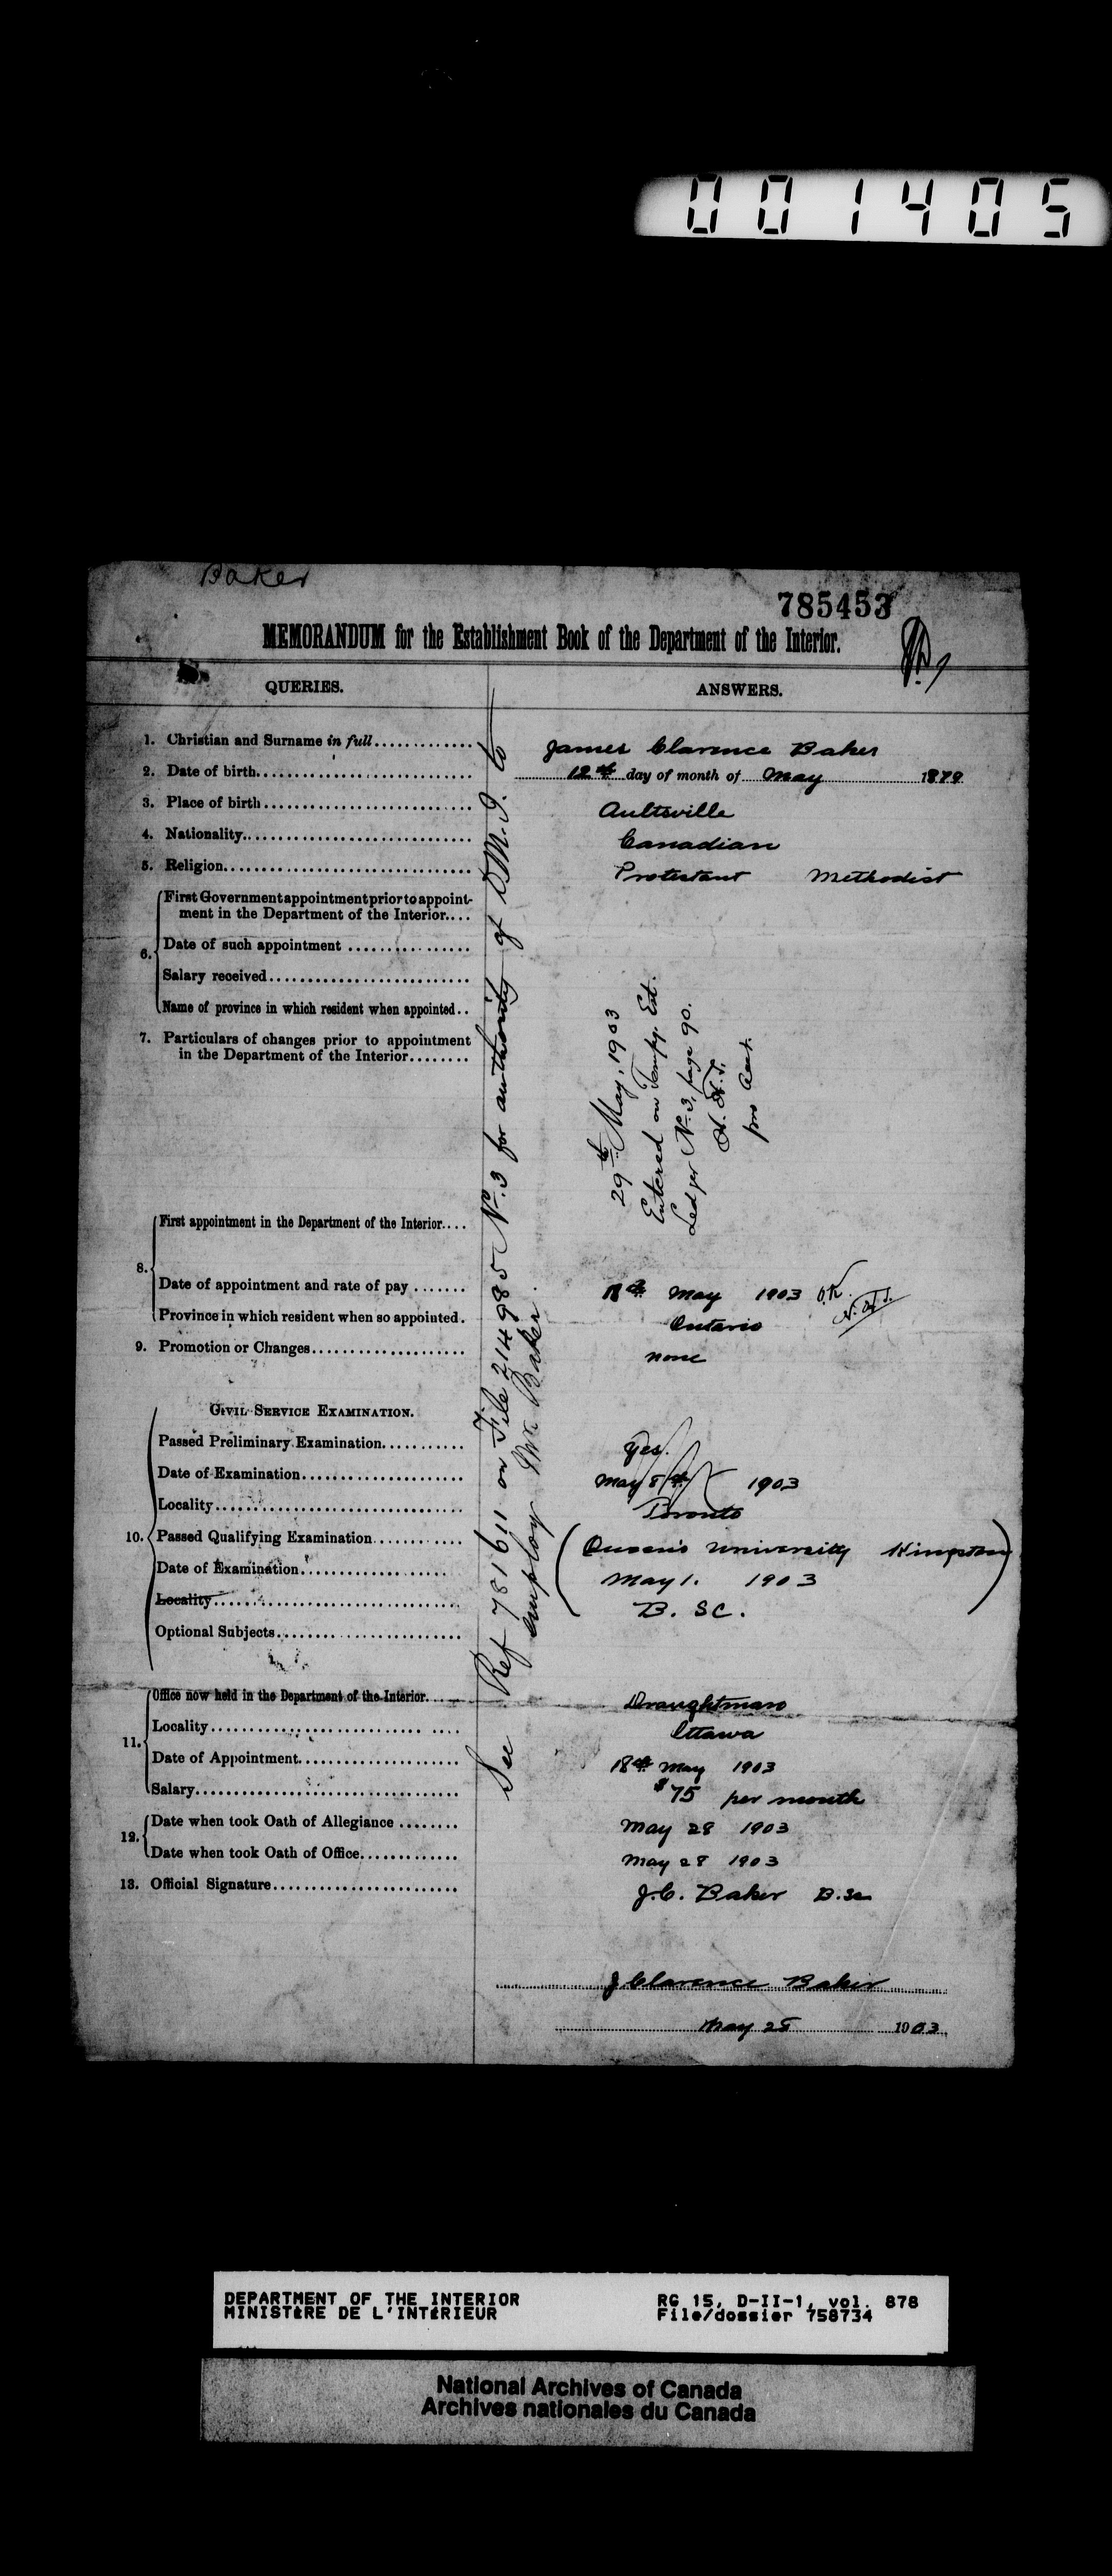 001405
Baker
785453
MEMORANDUM for the Establishment Book of the Department of the Interior.
QUERIES.
ANSWERS.
1. Christian and Surname in full
James Clarence Baker
2. Date of birth
12th day of month of May 1879
3. Place of birth
Aultsville
4. Nationality
Canadian
5. Religion
Protestant Methodist
6. First Government appointment prior to appointment in the Department of the Interior
Date of such appointment
Salary received
Name of province in which resident when appointed
7. Particulars of changes prior to appointment
in the Department of the Interior
29th May, 1903
Entered on Tempy. Est.
Ledger No. 3, page 90.
for Acct.
See Ref 781611 on File 214985 No. 3 for authority of D.M.I. to
employ Mr. Baker.
8. First appointment in the Department of the Interior
Date of appointment and rate of pay
18th May 1903 O.K.
Province in which resident when so appointed
Ontario
9. Promotion or Changes
none
10. CIVIL SERVICE EXAMINATION.
Passed Preliminary Examination
Yes.
Date of Examination
May 8th 1903
Locality
Toronto
Passed Qualifying Examination
(Queen's University Kingston)
Date of Examination
May 1. 1903
Locality
B. SC.
Optional Subjects
11. Office now held in the Department of the Interior
Draughtsman
Locality
Ottawa
Date of Appointment
18th May 1903
Salary
$75 per month
12. Date when took Oath of Allegiance
May 28 1903
Date when took Oath of Office
May 28 1903
13. Official Signature
J.C. Baker B.Sc
J Clarence Baker
May 28 1903
DEPARTMENT OF THE INTERIOR
MINISTÈRE DE L'INTÉRIEUR
RG 15, D-II-1, vol. 878
File/dossier 758734
National Archives of Canada
Archives nationales du Canada